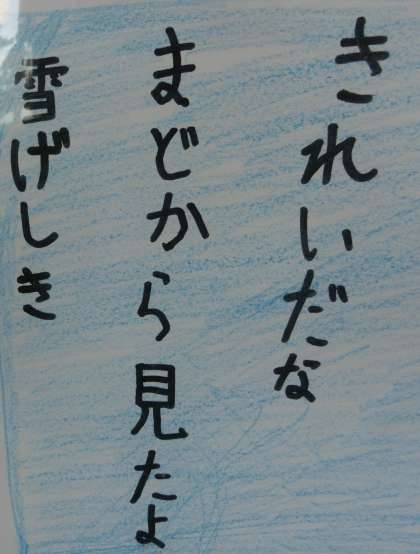 きれいだな
まどから見たよ
雪げしき